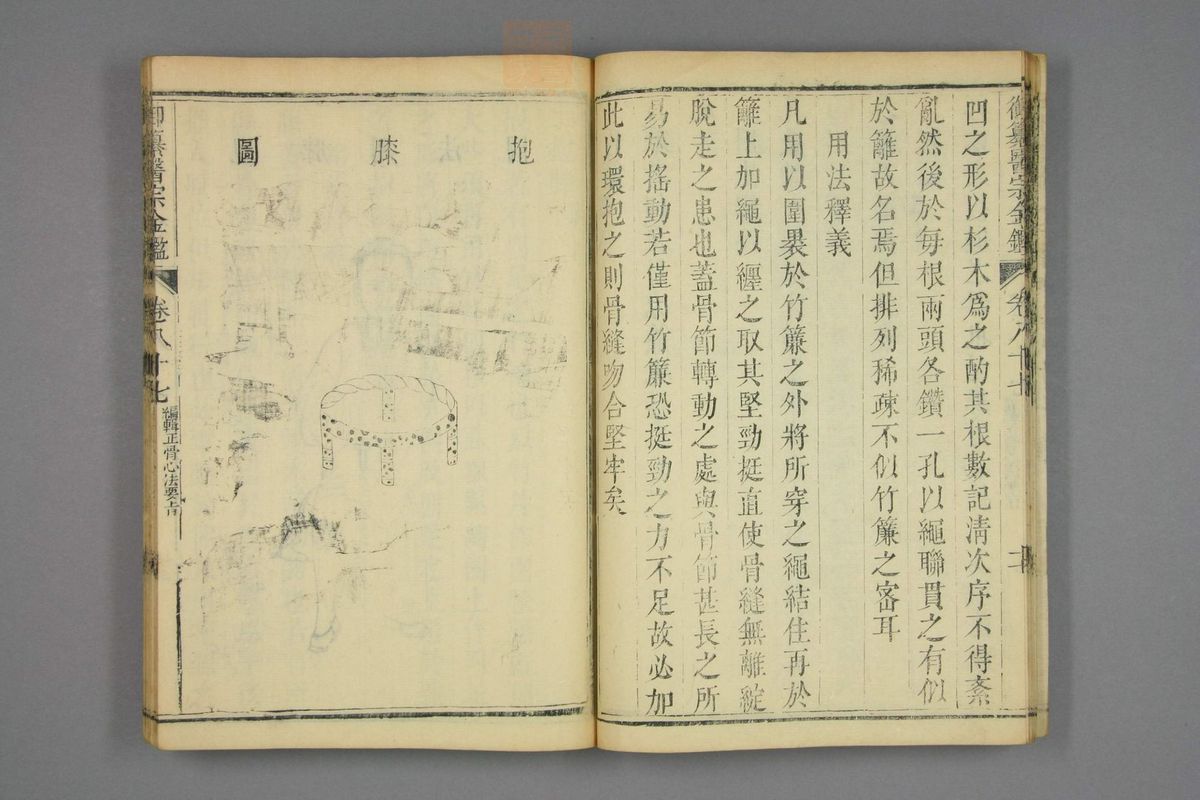 御纂醫宗金鑑
卷八十七
凹之形以杉木爲之酌其根數記清次序不得紊
亂然後於每根兩頭各鑽一孔以繩聯貫之有似
於籬故名焉但排列稀疎不似竹簾之密耳
用法釋義
凡用以圍褁於竹簾之外將所穿之繩結住再於
簾上加繩以纏之取其堅勁挺直使骨縫無離綻
脫走之患也蓋骨節轉動之處與骨節甚長之所
易於搖動若僅用竹簾恐挺勁之力不足故必加
此以環抱之則骨縫吻合堅牢矣
抱膝圖
御纂醫宗金鑑
卷八十七
編輯正骨心法要旨